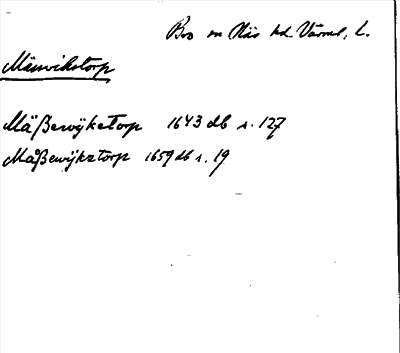 Bro sn Näs hd Värml, L.
Mässvikstorp
Mäßewÿketorp 1643 db s. 127
Måßewÿkztorp 1659 db s. 19